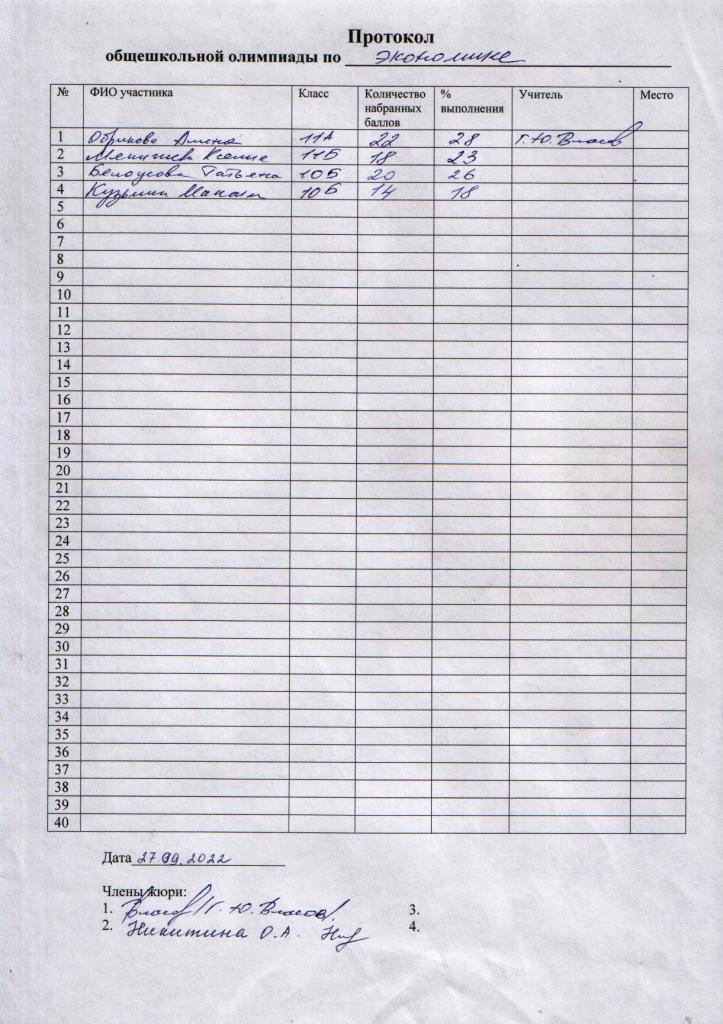 Протокол
общешкольной олимпиады по экономике
№ ФИО участника Класс Количество набранных баллов % выполнения Учитель Место
1 Алина 11А 22 28 Г.Ю. Власов
2 11Б 18 23
3 Белоусова Татьяна 10Б 20 26
4 Кузьмин 10Б 14 18
5
6
7
8
9
10
11
12
13
14
15
16
17
18
19
20
21
22
23
24
25
26
27
28
29
30
31
32
33
34
35
36
37
38
39
40
Дата 27.09.2022
Члены жюри:
1. Власов / Г.Ю. Власов. 3.
2. Никитина О.А. 4.